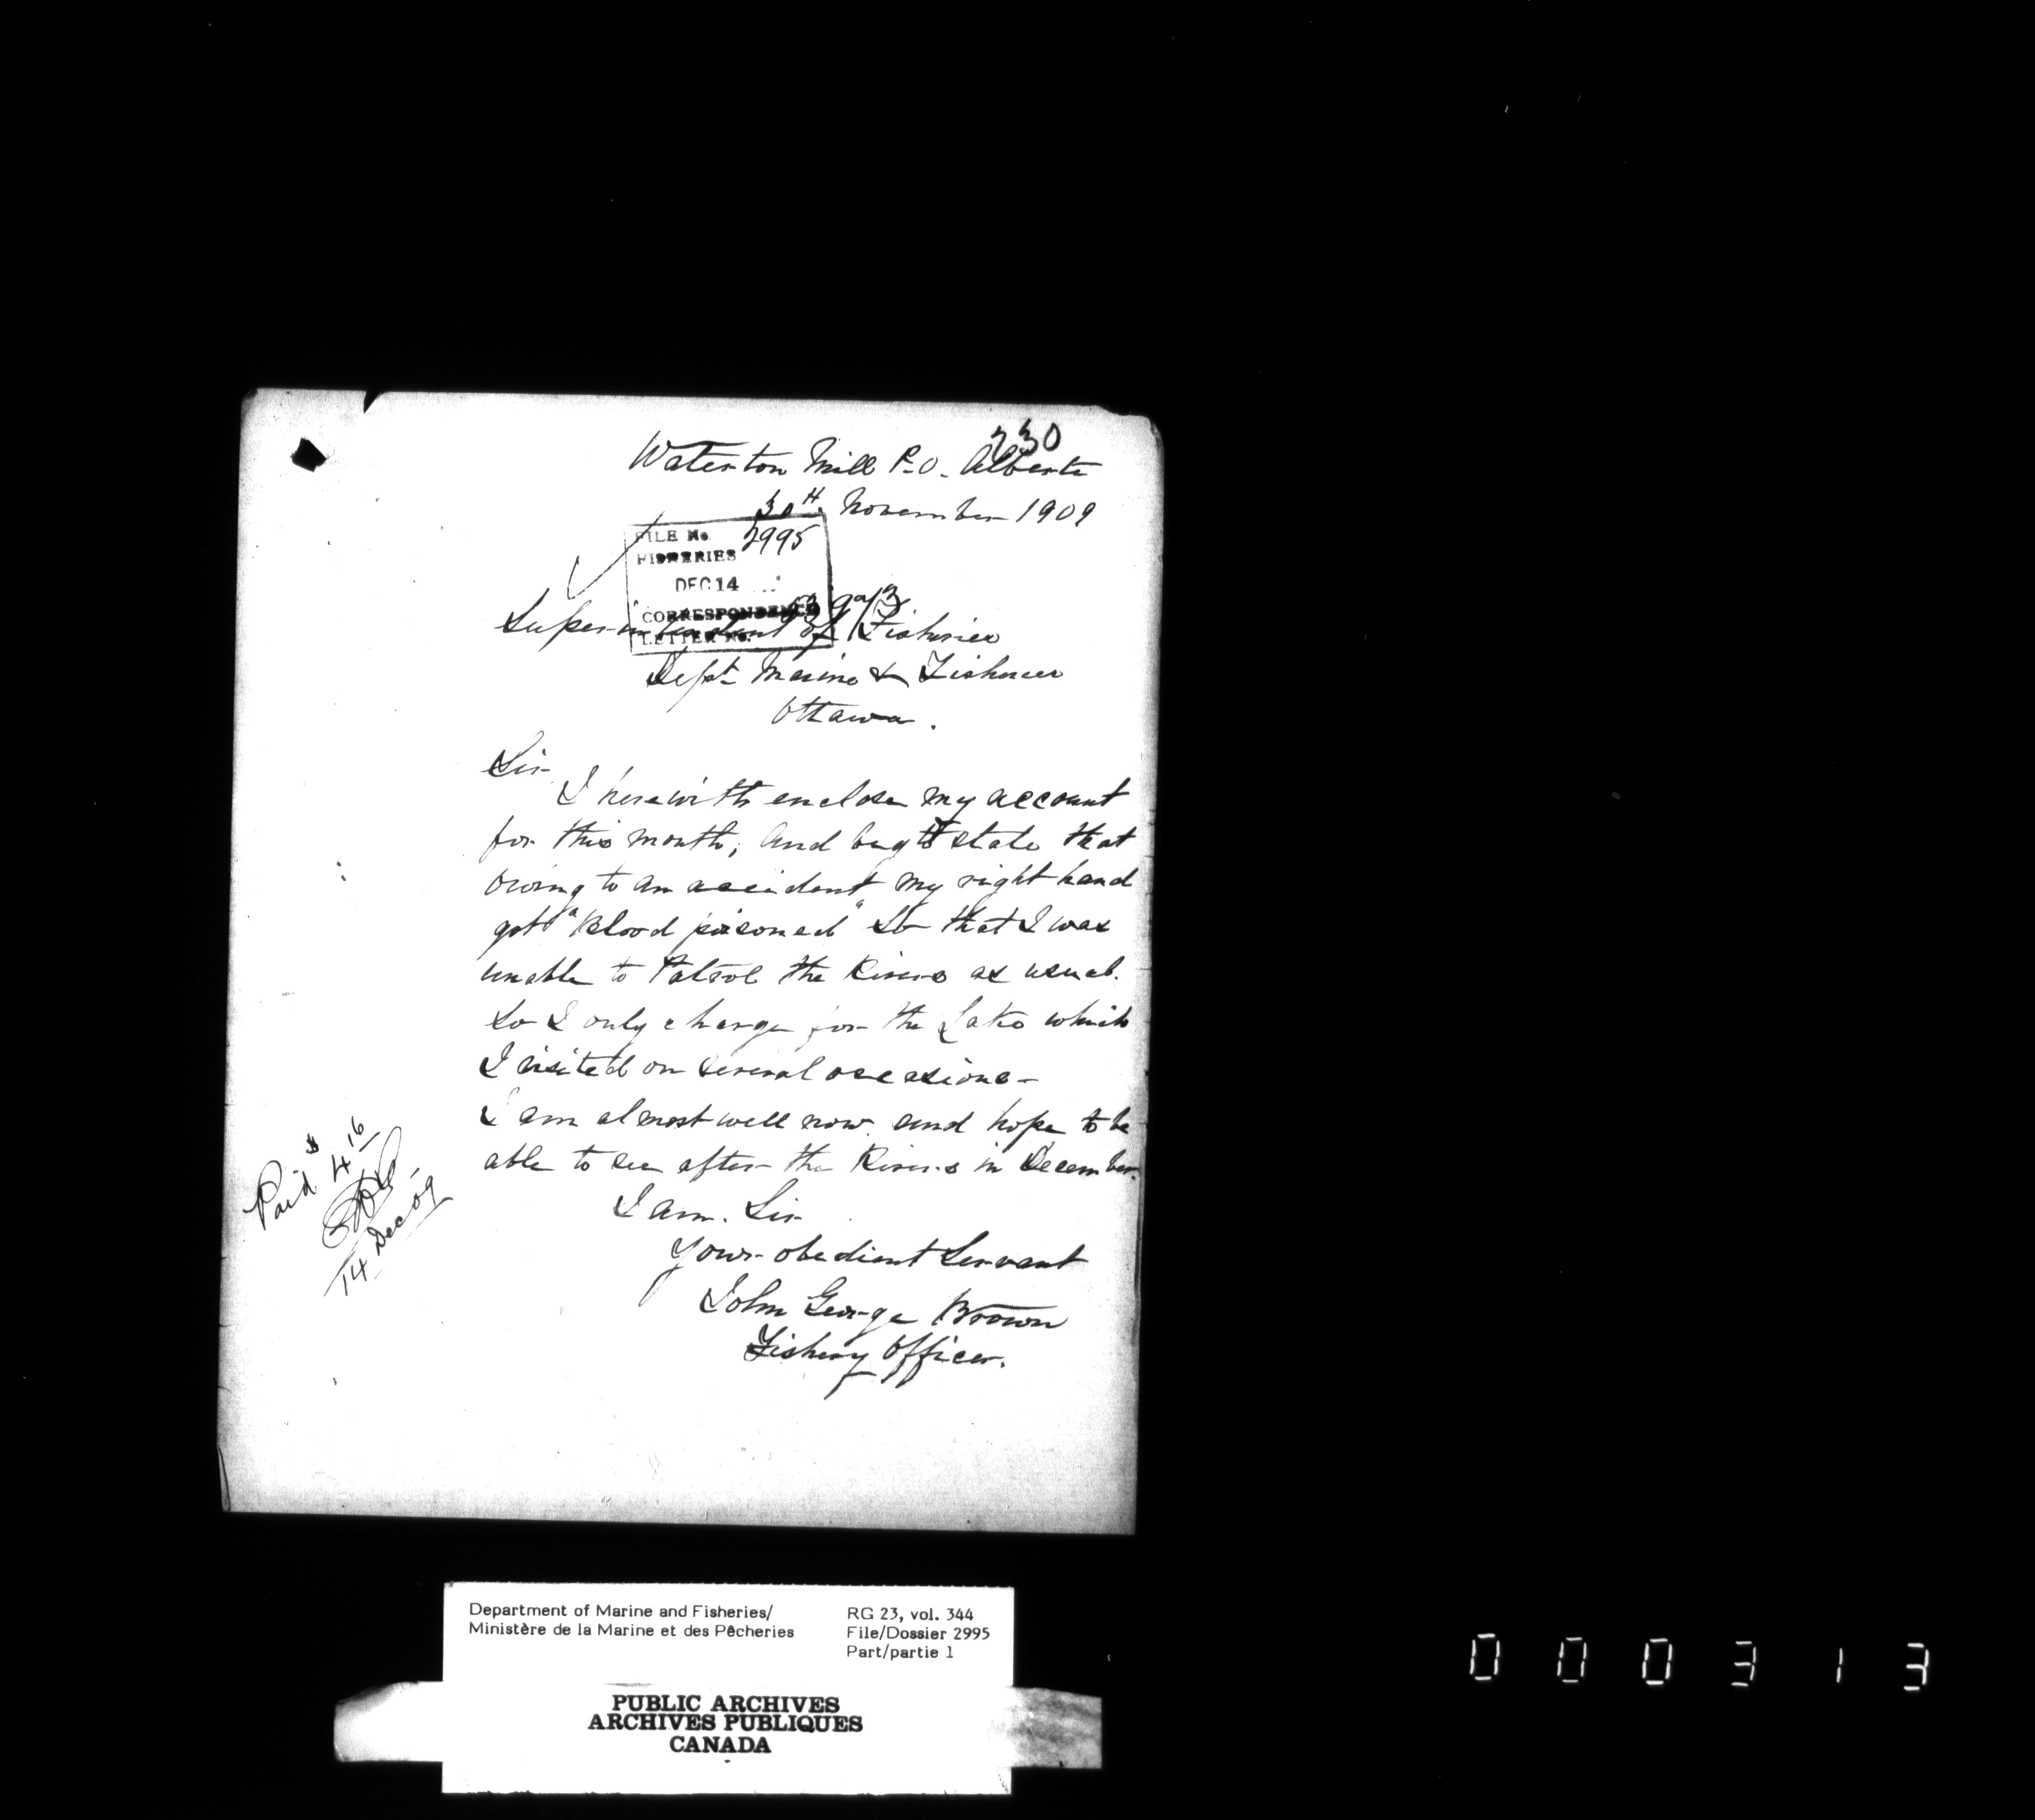 230
Waterton Mill P.O. Alberta
30th November 1909
FILE No. 2995
FISHERIES
DEC 14
CORRESPONDENCE
LETTER No.
Superintendent of Fisheries
Dept Marine & Fisheries
Ottawa.
Sir
I herewith enclose my account
for this month, and beg to state that
owing to an accident my right hand
got "Blood poisoned" so that I was
unable to Patrol the Rivers as usual.
So I only charge for the Lake which
I visited on several occasions -
I am almost well now. and hope to be
able to see after the Rivers in December.
I am. Sir
Your obedient Servant
John George Brown
Fishery Officer.
Paid $4 16
14 Dec 09
Department of Marine and Fisheries/
Ministère de la Marine et des Pêcheries
RG 23, vol. 344
File/Dossier 2995
Part/partie 1
PUBLIC ARCHIVES
ARCHIVES PUBLIQUES
CANADA
000313